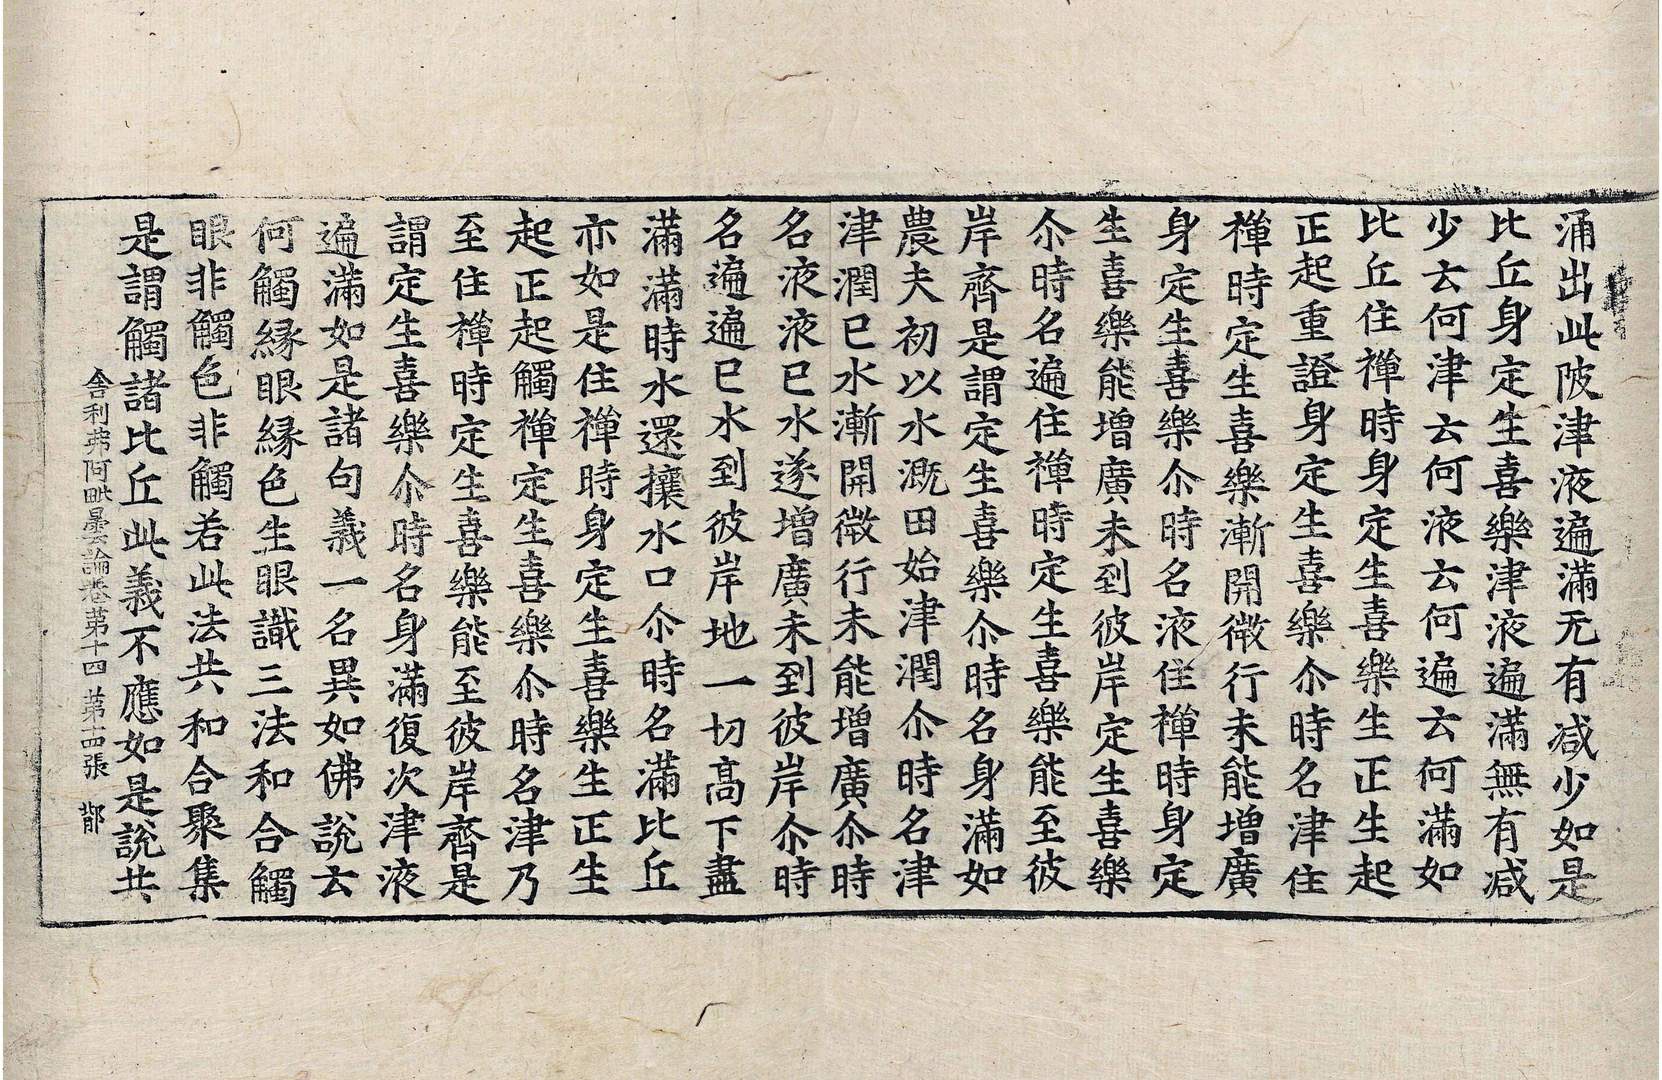 涌出此陂津液遍滿无有減少如是
比丘身定生喜樂津液遍滿無有減
少云何津云何液云何遍云何滿如
比丘住禪時身定生喜樂生正生起
正起重證身定生喜樂尒時名津住
禪時定生喜樂漸開微行未能增廣
身定生喜樂尒時名液住禪時身定
生喜樂能增廣未到彼岸定生喜樂
尒時名遍住禪時定生喜樂能至彼
岸齊是謂定生喜樂尒時名身滿如
農夫初以水溉田始津潤尒時名津
津潤已水漸開微行未能增廣尒時
名液液已水遂增廣未到彼岸尒時
名遍遍已水到彼岸地一切高下盡
滿滿時水還攘水口尒時名滿比丘
亦如是住禪時身定生喜樂生正生
起正起觸禪定生喜樂尒時名津乃
至住禪時定生喜樂能至彼岸齊是
謂定生喜樂尒時名身滿復次津液
遍滿如是諸句義一名異如佛說云
何觸緣眼緣色生眼識三法和合觸
眼非觸色非觸若此法共和合聚集
是謂觸諸比丘此義不應如是說共
舍利弗阿毗曇論卷第十四 第十四張 都